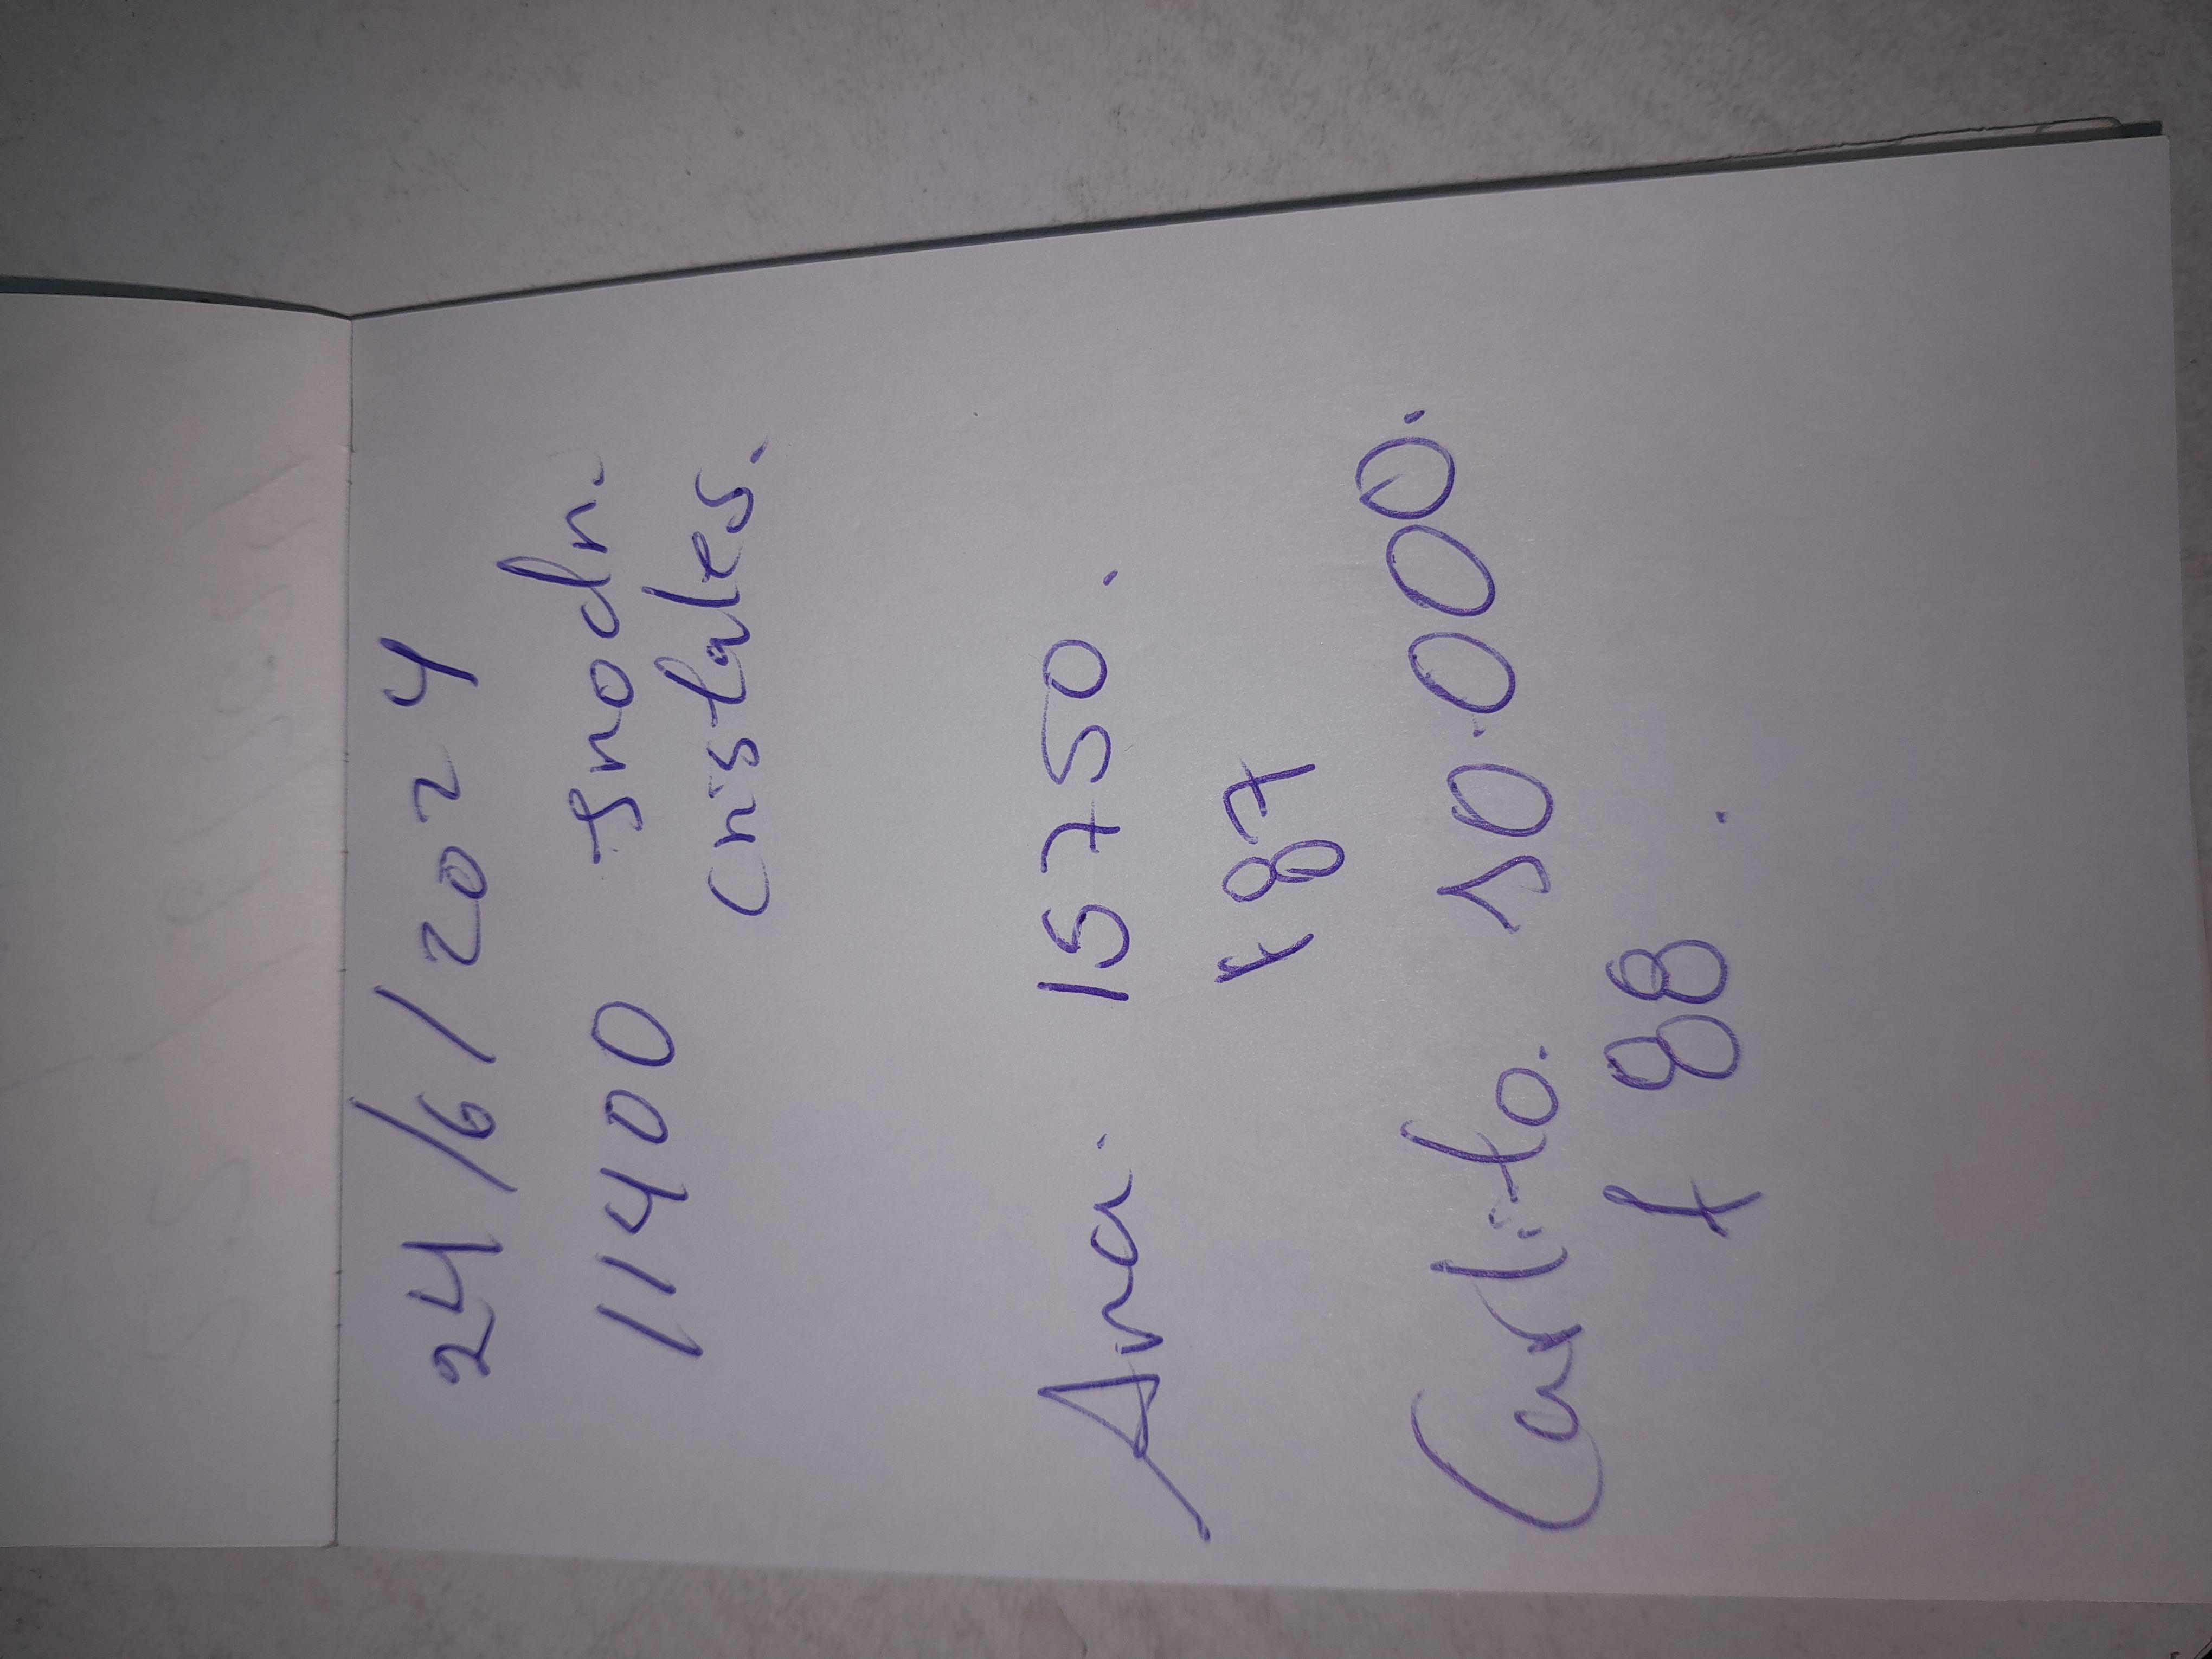 24/6/2024
11400 Inodn.
cristales.
Ana. 15750.
f 87
Carlito. 10.000.
f 88.